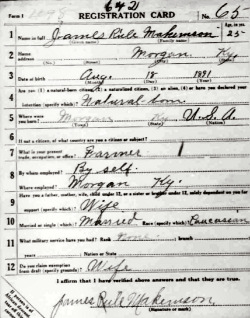 6421
Form 1 REGISTRATION CARD No. 65
1 Name in full James Rule Makemson Age, in yrs. 25
(Given name) (Family name)
2 Home address Morgan Ky.
(No.) (Street) (City) (State)
3 Date of birth Aug. 18 1891
(Month) (Day) (Year)
4 Are you (1) a natural-born citizen, (2) a naturalized citizen, (3) an alien, (4) or have you declared your
intention (specify which)? Natural born
5 Where were you born? Morgan Ky U.S.A.
(Town) (State) (Nation)
6 If not a citizen, of what country are you a citizen or subject?
7 What is your present trade, occupation, or office? Farmer 1
8 By whom employed? By self.
Where employed? Morgan Ky.
9 Have you a father, mother, wife, child under 12, or a sister or brother under 12, solely dependent on you for
support (specify which)? Wife
10 Married or single (which)? Married Race (specify which)? Caucasian
11 What military service have you had? Rank None branch
years Nation or State
12 Do you claim exemption from draft (specify grounds)? Wife
I affirm that I have verified above answers and that they are true.
James Rule Makemson
(Signature or mark)